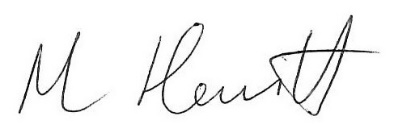 M Hewitt